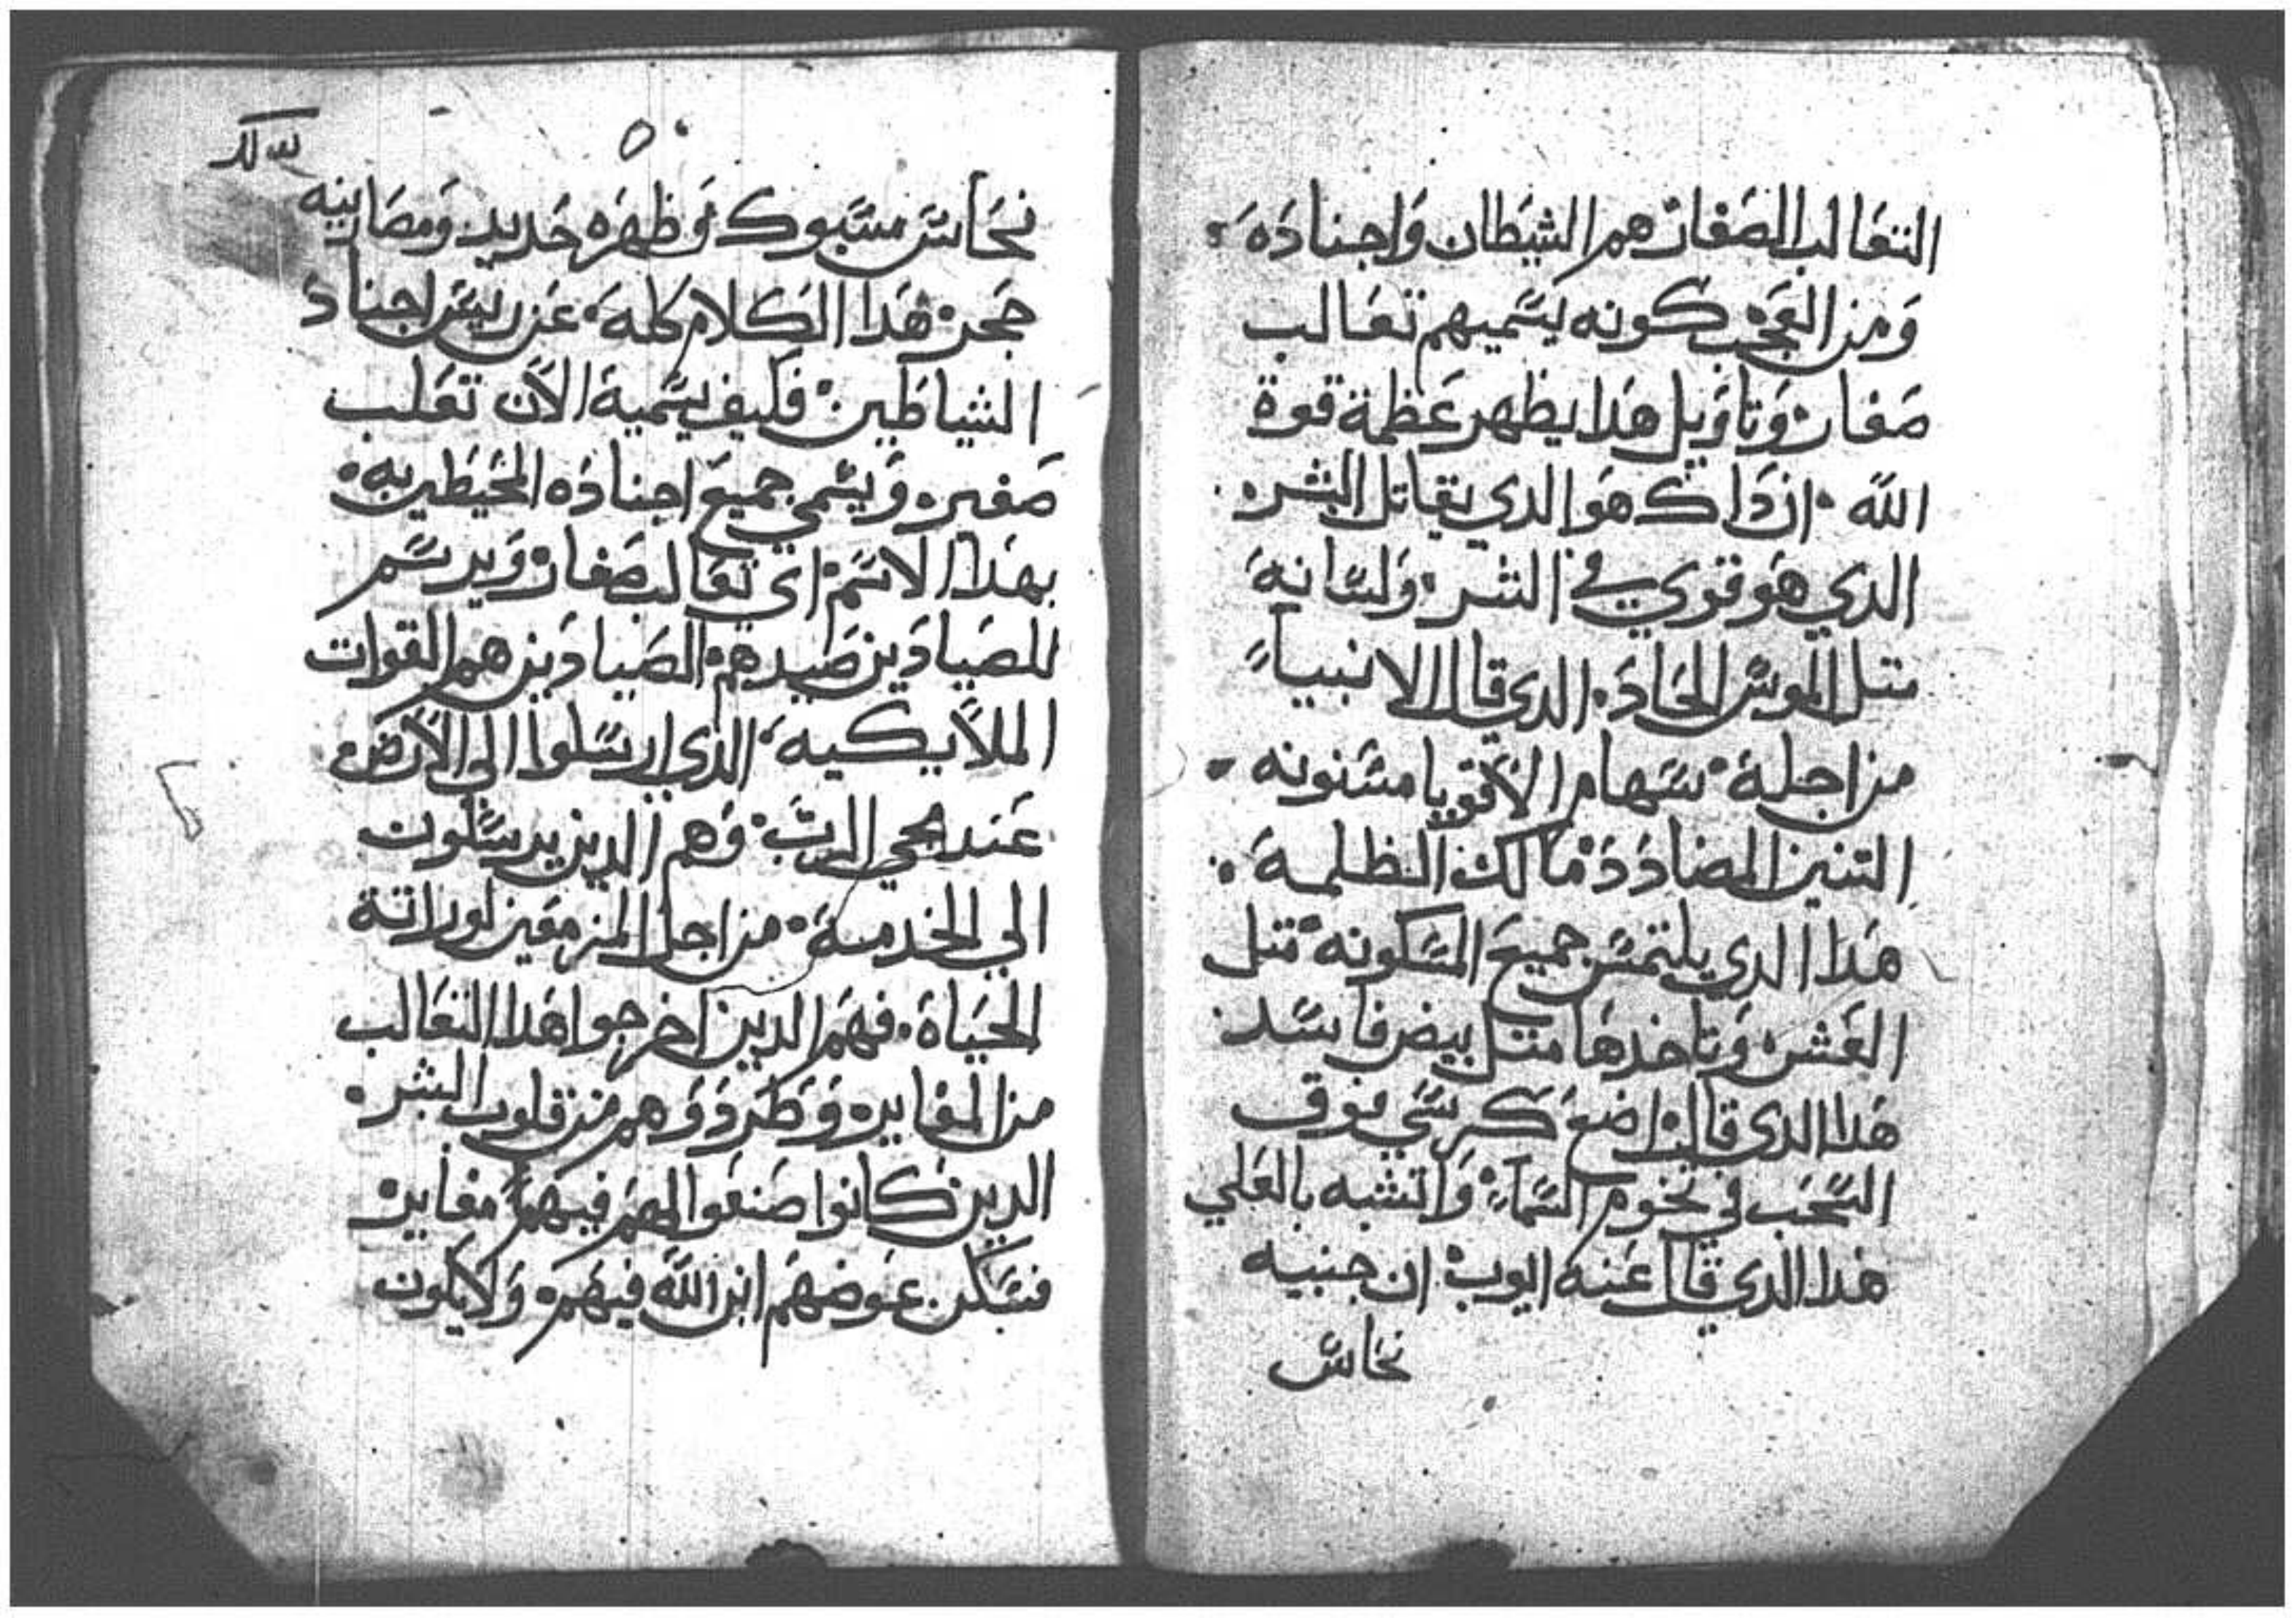 التعالب الصغار هم الشيطان واجناده
ومن العجب كونه يسميهم تعالب
صغار وتاويل هدا يظهر عظمة قوة
الله ان داك هو الدي يقاتل البشر
الدي هو قوي في الشر ولسانه
متل الموس الحاد الدي قال الانبياء
من اجله سهام الاقويا مسنونه
التنين المضادد مالك الظلمه
هدا الدي يلتمس جميع المسكونه متل
العش وتاخدها متل بيض فاسد
هدا الدي قال اضع كرسي فوق
السحب في تخوم السماء واتشبه بالعلي
هدا الدي قال عنه ايوب ان جنبيه
نحاس
نحاس مسبوك وظهره حديد ومصارينه
حجر هدا الكلام كله عن رييس اجناد
الشياطين فكيف يسمية الان تعلب
صغير ويسمي جميع اجناده المحيطين به
بهدا الاسم اي تعالب صغار ويرسم
للصيادين صيدهم الصيادين هم القوات
الملايكيه الدي ارسلوا الي الارض
عند مجي الرب وهم الدين يرسلون
الي الخدمة من اجل المزمعين لوراتة
الحياة فهم الدين اخرجوا هدا التعالب
من المغاير وطردووهم من قلوب البشر
الدين كانوا صنعوا لهم فيهم مغاير
فسكن عوضهم ابن الله فيهم ولايكون